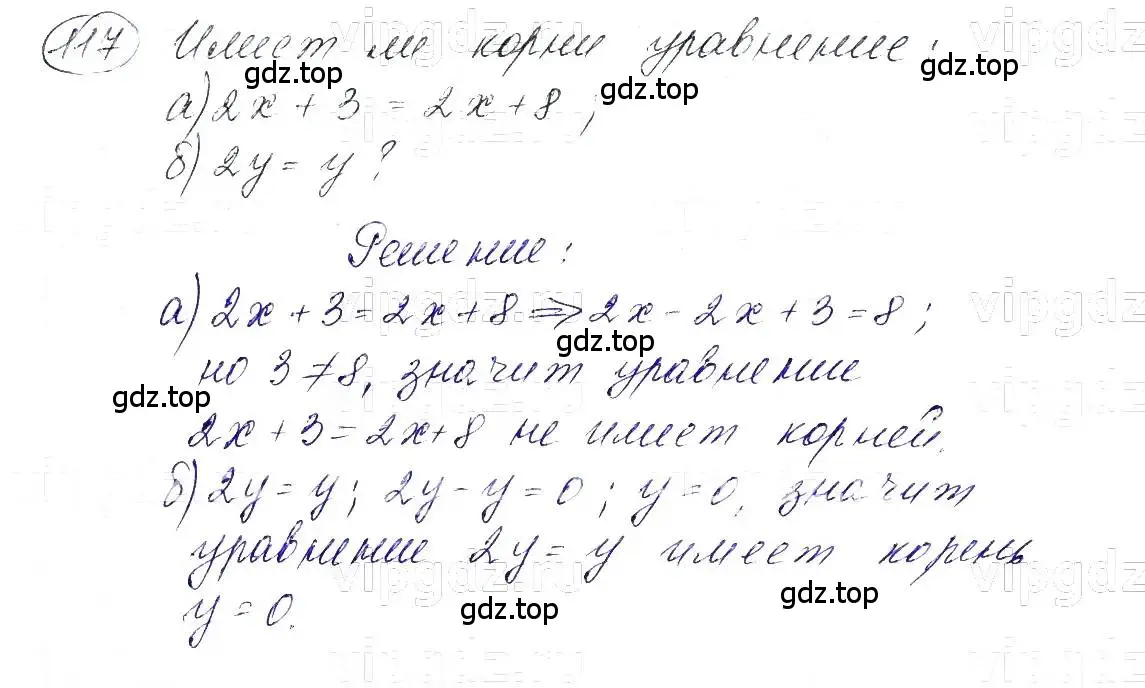 117 Имеет ли корни уравнение:
а) 2x + 3 = 2x + 8;
б) 2y = y?
Решение:
а) 2x + 3 = 2x + 8 => 2x - 2x + 3 = 8;
но 3 ≠ 8, значит уравнение
2x + 3 = 2x + 8 не имеет корней.
б) 2y = y; 2y - y = 0; y = 0, значит
уравнение 2y = y имеет корень
y = 0.
gdz.top
gdz.top
gdz.top
gdz.top
gdz.top
gdz.top
gdz.top
vipgdz.ru